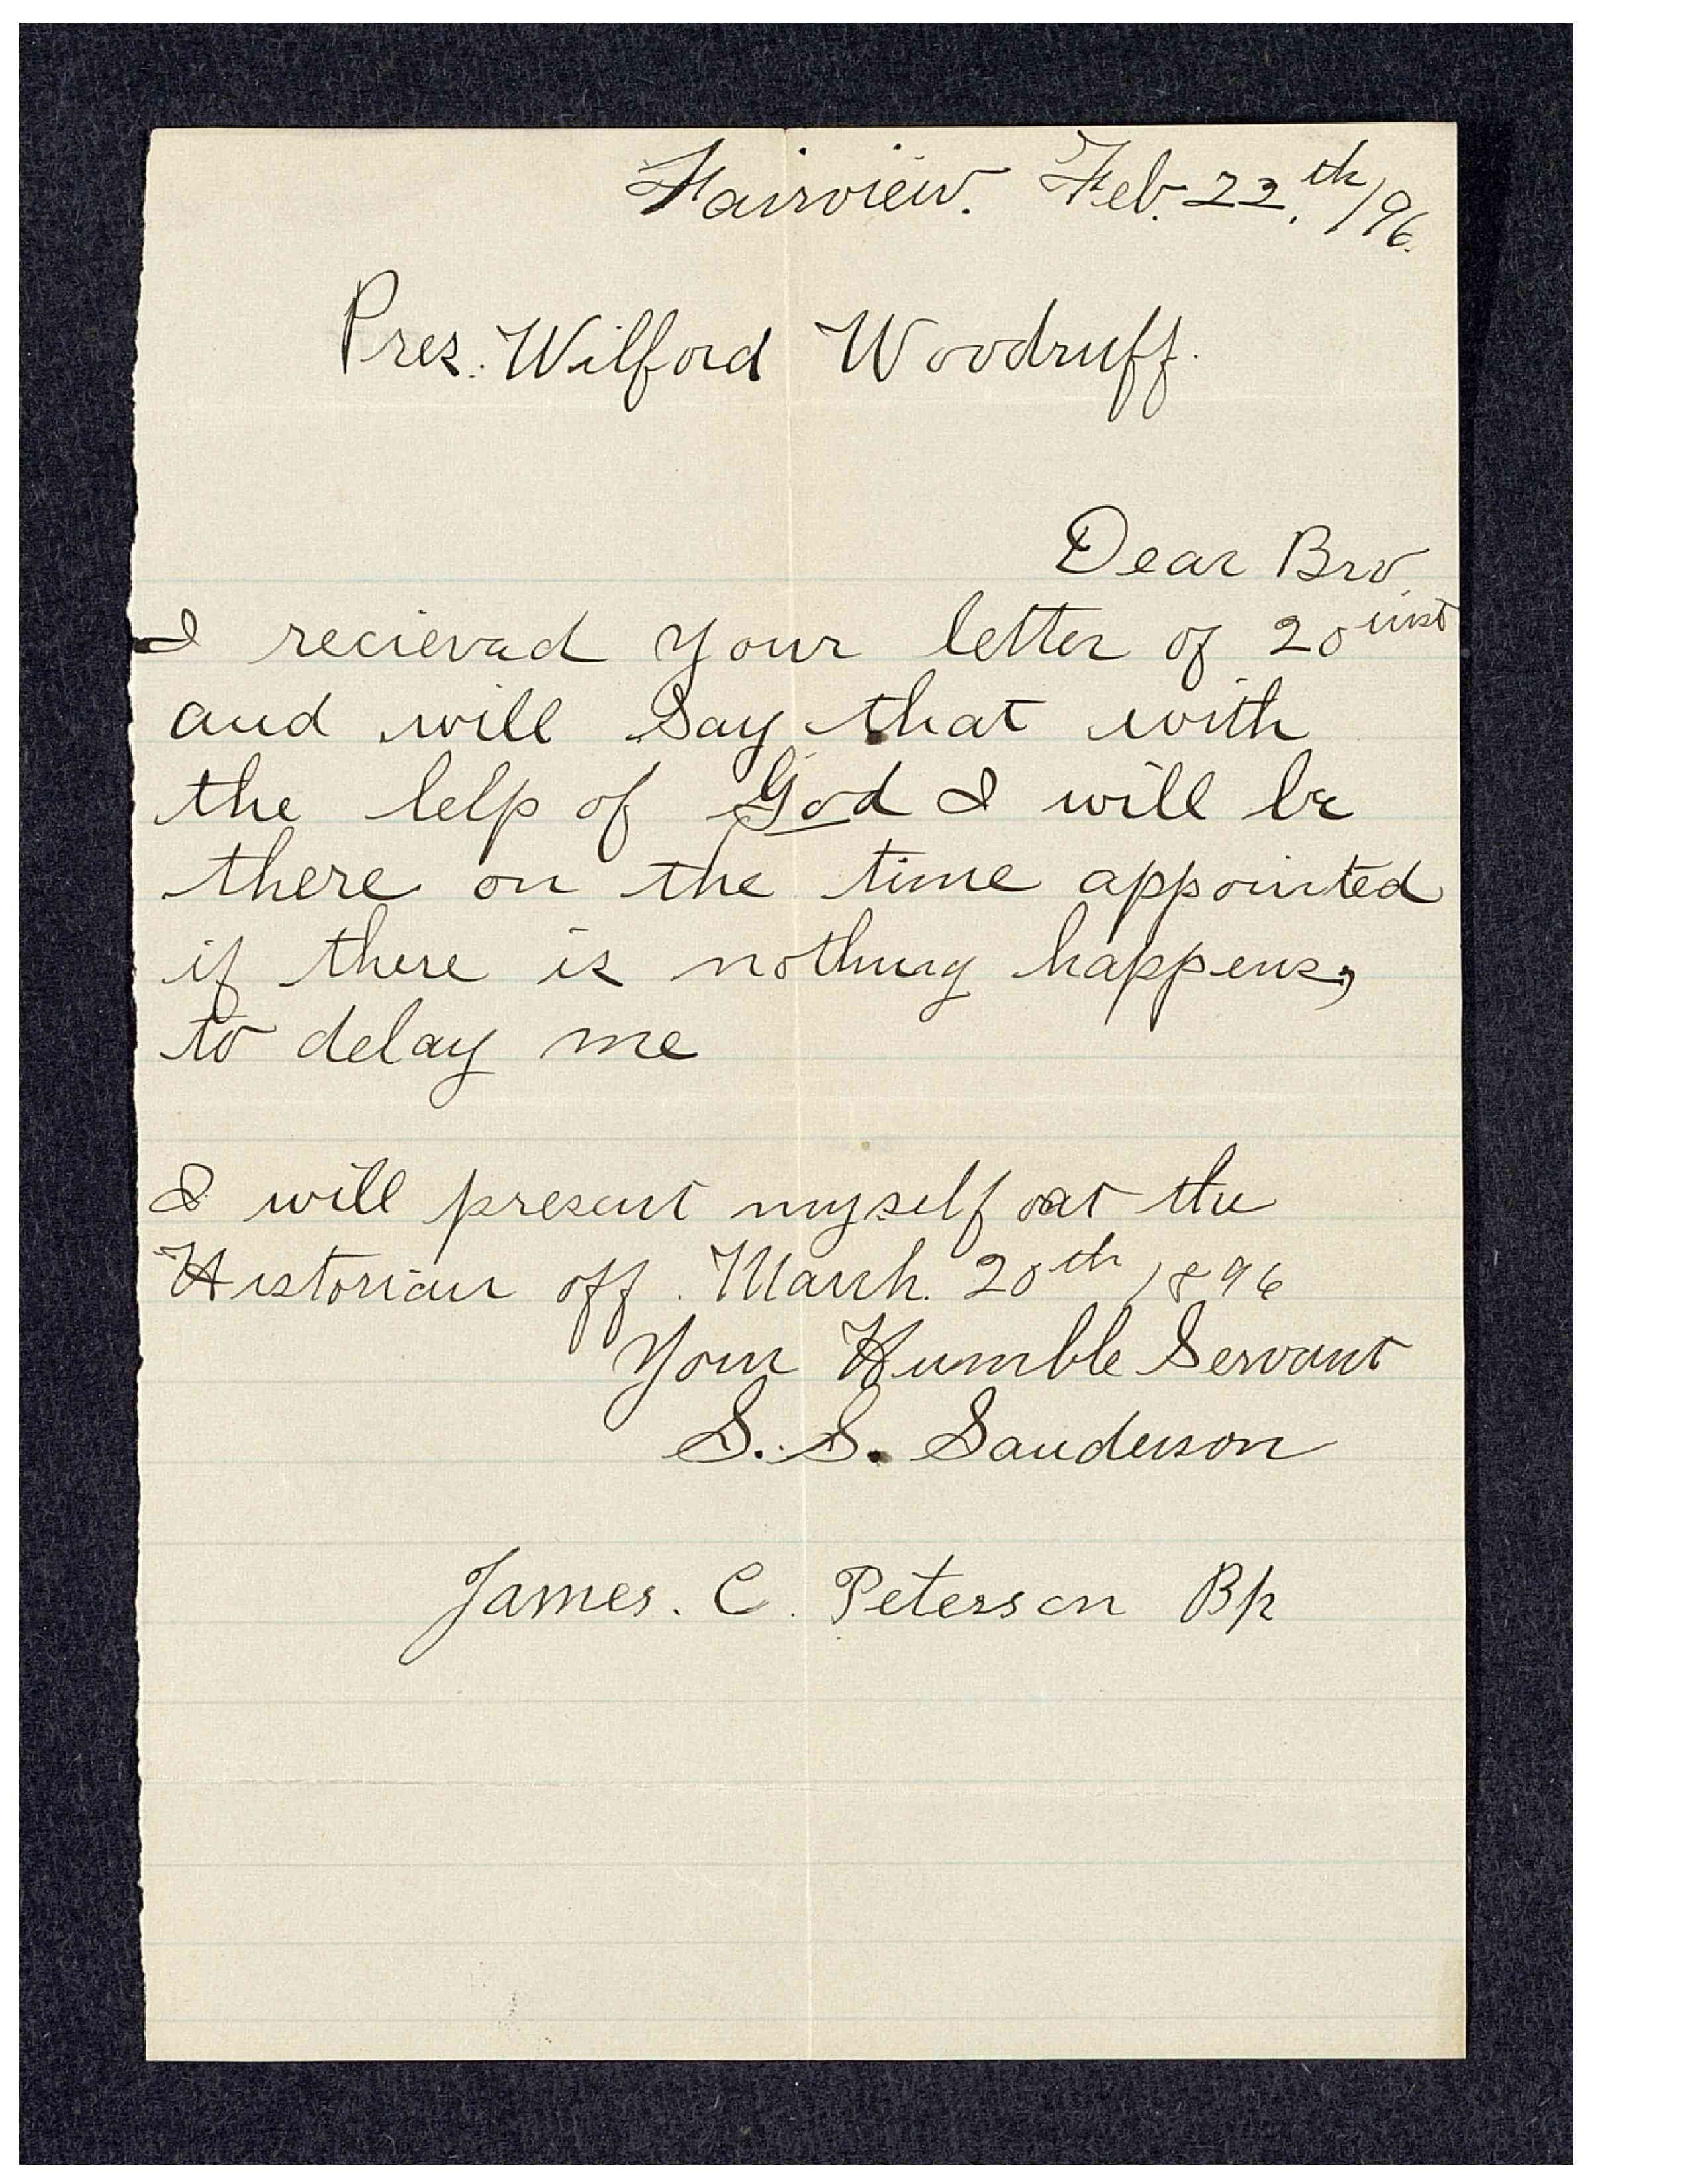 Fairview. Feb. 22.th/96.
Pres. Wilford Woodruff.
Dear Bro
I recieved your letter of 20 inst
and will Say that with
the lelp of God I will be
there on the time appointed
if there is nothing happens,
to delay me
I will present myself at the
Historian off. March. 20th 1896
Your Humble Servant
S. S. Sanderson
James. C. Peterson Bp